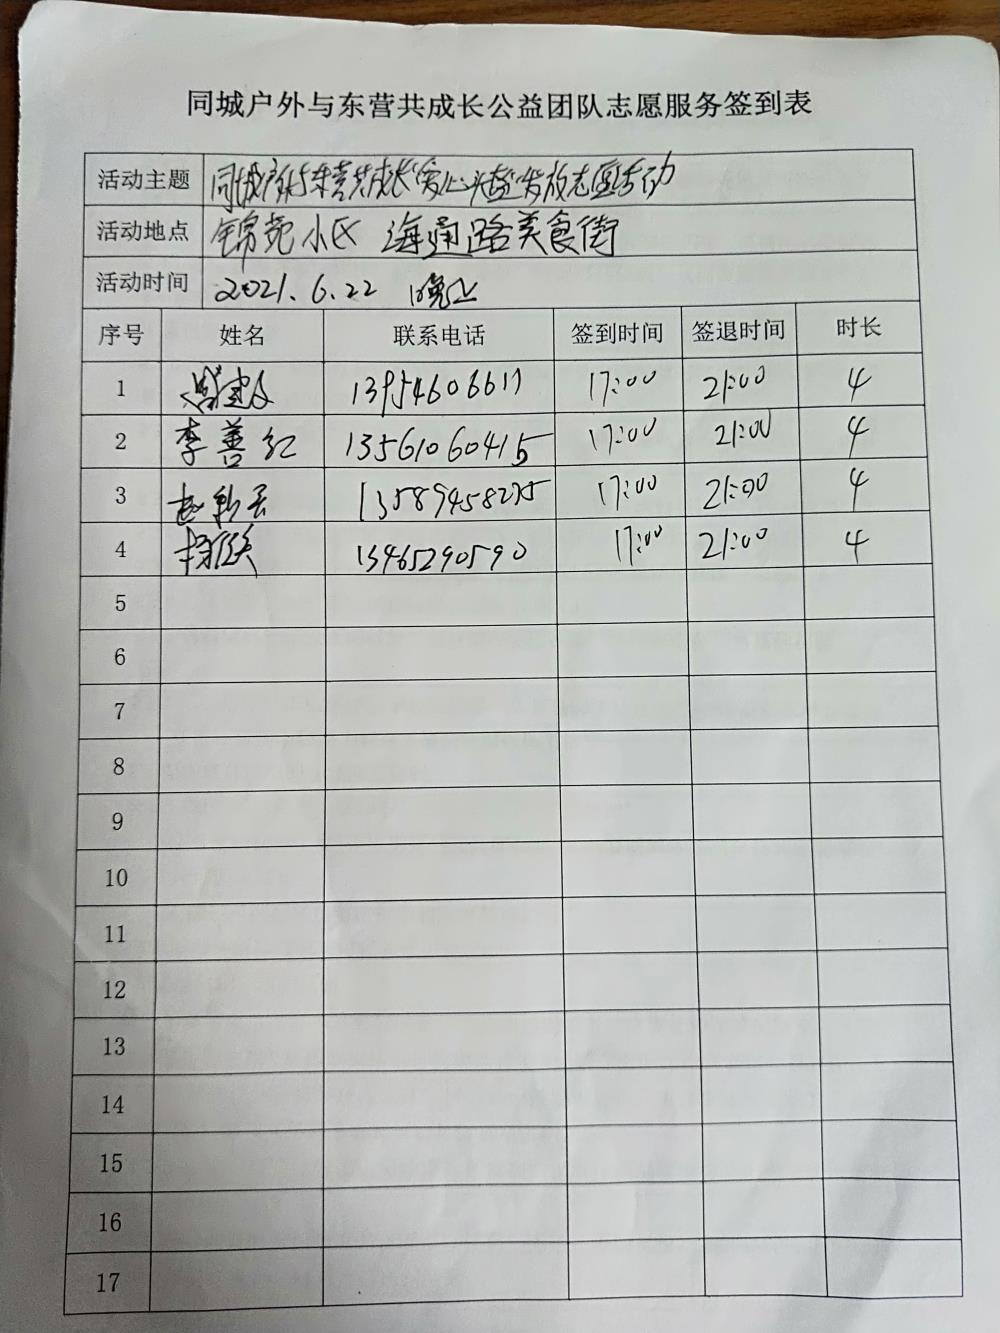 同城户外与东营共成长公益团队志愿服务签到表
活动主题 同城户外与东营共成长"爱心头盔"发放志愿活动
活动地点 锦苑小区 海通路美食街
活动时间 2021.6.22 晚上
序号 姓名 联系电话 签到时间 签退时间 时长
1 17:00 21:00 4
2 李善红 13561060415 17:00 21:00 4
3 13589458275 17:00 21:00 4
4 13465290590 17:00 21:00 4
5
6
7
8
9
10
11
12
13
14
15
16
17